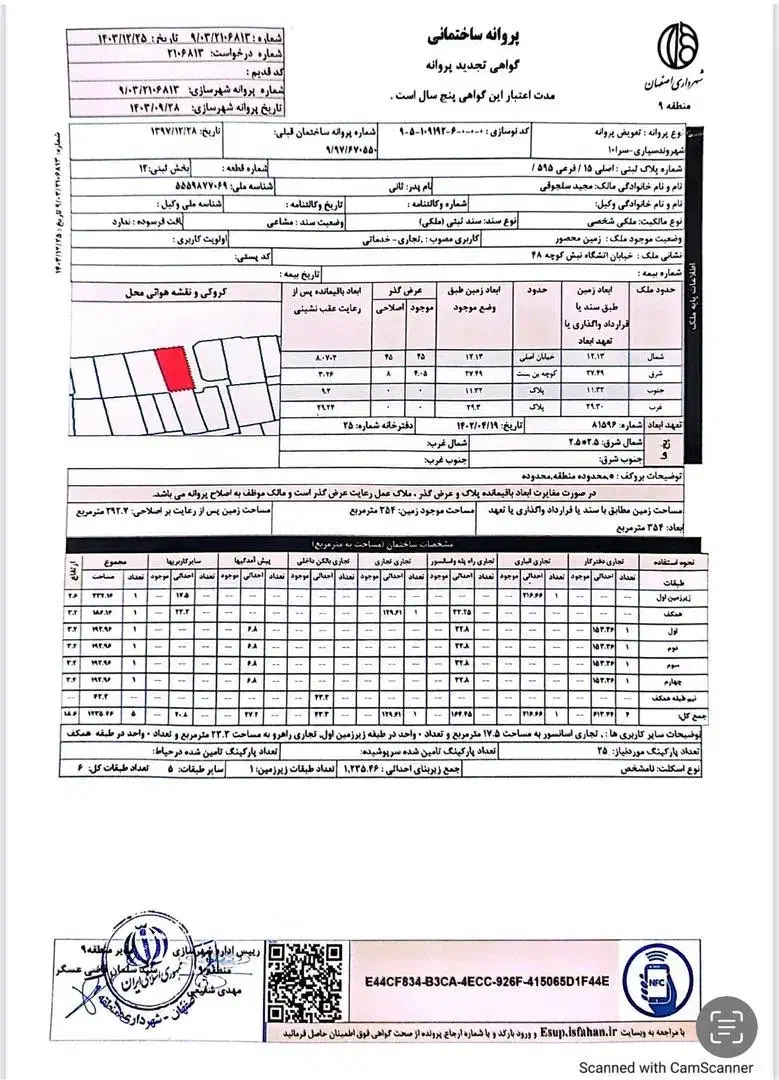 پروانه ساختمانی
گواهی تجدید پروانه
مدت اعتبار این گواهی پنج سال است .
شهرداری اصفهان
منطقه ۹
شماره : ۹/۰۳/۲۱۰۶۸۱۳ تاریخ : ۱۴۰۳/۱۲/۲۵
شماره درخواست: ۲۱۰۶۸۱۳
کد قدیم :
شماره پروانه شهرسازی: ۹/۰۳/۲۱۰۶۸۱۳
تاریخ پروانه شهرسازی: ۱۴۰۳/۰۹/۲۸
شماره: ۹/۰۳/۲۱۰۶۸۱۳ تاریخ: ۱۴۰۳/۱۲/۲۵
اطلاعات پایه ملک
نوع پروانه : تعویض پروانه کد نوسازی : ۰-۰-۰-۶-۱۰۹۱۹۲-۵-۹ شماره پروانه ساختمان قبلی: تاریخ: ۱۳۹۷/۱۲/۲۸
شهروندسپاری-سرا۱۰ ۹/۹۷/۶۷۰۵۵۰
شماره پلاک ثبتی : اصلی ۱۵ / فرعی ۵۹۵ / شماره قطعه : بخش ثبتی: ۱۴
نام و نام خانوادگی مالک: مجید سلجوقی نام پدر: ثانی شناسه ملی: ۵۵۵۹۸۷۷۰۶۹
نام و نام خانوادگی وکیل: شماره وکالتنامه : تاریخ وکالتنامه : شناسه ملی وکیل :
نوع مالکیت: ملکی شخصی نوع سند: سند ثبتی (ملکی) وضعیت سند : مشاعی بافت فرسوده : ندارد
وضعیت موجود ملک : زمین محصور کاربری مصوب : ,تجاری- خدماتی اولویت کاربری :
نشانی ملک : خیابان اتشگاه نبش کوچه ۴۸ کد پستی:
شماره بیمه : تاریخ بیمه :
حدود ملک ابعاد زمین طبق سند یا قرارداد واگذاری یا تعهد ابعاد حدود ابعاد زمین طبق وضع موجود عرض گذر موجود اصلاحی ابعاد باقیمانده پس از رعایت عقب نشینی کروکی و نقشه هوائی محل
شمال ۱۲.۱۳ خیابان اصلی ۱۲.۱۳ ۴۵ ۴۵ ۸.۰۷۰۲
شرق ۲۷.۴۹ کوچه بن بست ۲۷.۴۹ ۴.۰۵ ۸
جنوب ۱۱.۳۲ پلاک ۱۱.۳۲ ۰ ۰ ۹.۲
غرب ۲۹.۳۰ پلاک ۲۹.۳ ۰ ۰ ۲۹.۲۴
تعهد ابعاد شماره: ۸۱۵۹۶ تاریخ: ۱۴۰۲/۰۴/۱۹ دفترخانه شماره: ۲۵
پخ ها شمال شرق: ۲.۵*۲.۵ شمال غرب:
جنوب شرق: جنوب غرب:
توضیحات بروکف : *,محدوده منطقه,محدوده
در صورت مغایرت ابعاد باقیمانده پلاک و عرض گذر ، ملاک عمل رعایت عرض گذر است و مالک موظف به اصلاح پروانه می باشد.
مساحت زمین مطابق با سند یا قرارداد واگذاری یا تعهد مساحت موجود زمین: ۳۵۴ مترمربع مساحت زمین پس از رعایت بر اصلاحی: ۲۹۲.۷ مترمربع
ابعاد: ۳۵۴ مترمربع
مشخصات ساختمان (مساحت به مترمربع)
نحوه استفاده تجاری دفترکار تجاری انباری تجاری راه پله واسانسور تجاری تجاری تجاری بالکن داخلی پیش آمدگیها سایرکاربریها مجموع ارتفاع
طبقات تعداد احداثی موجود تعداد احداثی موجود تعداد احداثی موجود تعداد احداثی موجود تعداد احداثی موجود تعداد احداثی موجود تعداد احداثی موجود تعداد مساحت
زیرزمین اول -- -- -- ۱ ۳۱۶.۶۶ -- -- -- -- -- -- -- -- -- -- -- -- -- -- ۱۷.۵ -- ۱ ۳۳۴.۱۶ ۲.۶
همکف -- -- -- -- -- -- -- ۳۳.۲۵ -- ۱ ۱۲۹.۶۱ -- -- -- -- -- -- -- -- ۲۳.۳ -- ۱ ۱۸۶.۱۶ ۳.۲
اول ۱ ۱۵۳.۳۶ -- -- -- -- -- ۳۲.۸ -- -- -- -- -- -- -- -- ۶.۸ -- -- -- -- ۱ ۱۹۲.۹۶ ۳.۲
دوم ۱ ۱۵۳.۳۶ -- -- -- -- -- ۳۲.۸ -- -- -- -- -- -- -- -- ۶.۸ -- -- -- -- ۱ ۱۹۲.۹۶ ۳.۲
سوم ۱ ۱۵۳.۳۶ -- -- -- -- -- ۳۲.۸ -- -- -- -- -- -- -- -- ۶.۸ -- -- -- -- ۱ ۱۹۲.۹۶ ۳.۲
چهارم ۱ ۱۵۳.۳۶ -- -- -- -- -- ۳۲.۸ -- -- -- -- -- -- -- -- ۶.۸ -- -- -- -- ۱ ۱۹۲.۹۶ ۳.۲
نیم طبقه همکف -- -- -- -- -- -- -- -- -- -- -- -- -- ۴۳.۳ -- -- -- -- -- -- -- -- ۴۳.۳ --
جمع کل: ۴ ۶۱۳.۴۴ -- ۱ ۳۱۶.۶۶ -- -- ۱۶۴.۴۵ -- ۱ ۱۲۹.۶۱ -- -- ۴۳.۳ -- -- ۲۷.۲ -- -- ۴۰.۸ -- ۵ ۱۲۳۵.۴۶ ۱۸.۶
توضیحات سایر کاربری ها : , تجاری اسانسور به مساحت ۱۷.۵ مترمربع و تعداد ۰ واحد در طبقه زیرزمین اول, تجاری راهرو به مساحت ۲۳.۳ مترمربع و تعداد ۰ واحد در طبقه همکف
تعداد پارکینگ موردنیاز: ۲۵ تعداد پارکینگ تامین شده سرپوشیده: تعداد پارکینگ تامین شده درحیاط:
نوع اسکلت: نامشخص جمع زیربنای احداثی : ۱,۲۳۵.۴۶ تعداد طبقات زیرزمین: ۱ سایر طبقات: ۵ تعداد طبقات کل: ۶
رییس اداره شهرسازی
منطقه ۹
مدیر منطقه ۹
جمهوری اسلامی ایران
اصفهان - شهرداری منطقه
E44CF834-B3CA-4ECC-926F-415065D1F44E
NFC
با مراجعه به وبسایت Esup.isfahan.ir و ورود بارکد و یا شماره ارجاع پرونده از صحت گواهی فوق اطمینان حاصل فرمائید
Scanned with CamScanner